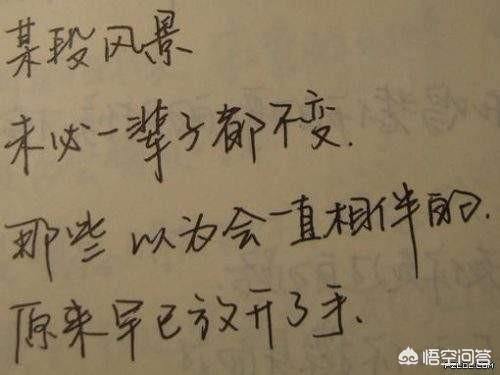 某段风景
未必一辈子都不变.
那些以为会一直相伴的.
原来早已放开了手.
悟空问答